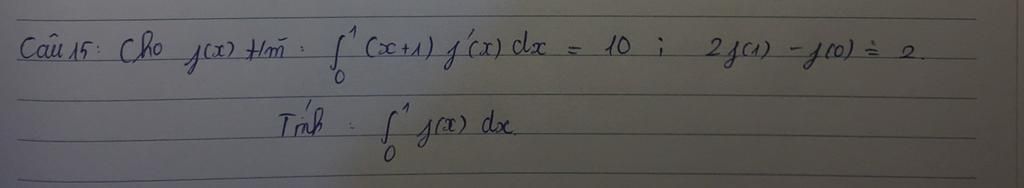 Câu 15: Cho f(x) t/m̃: ∫₀¹ (x+1) f'(x) dx = 10 ; 2f(1) - f(0) = 2.
Tính: ∫₀¹ f(x) dx.